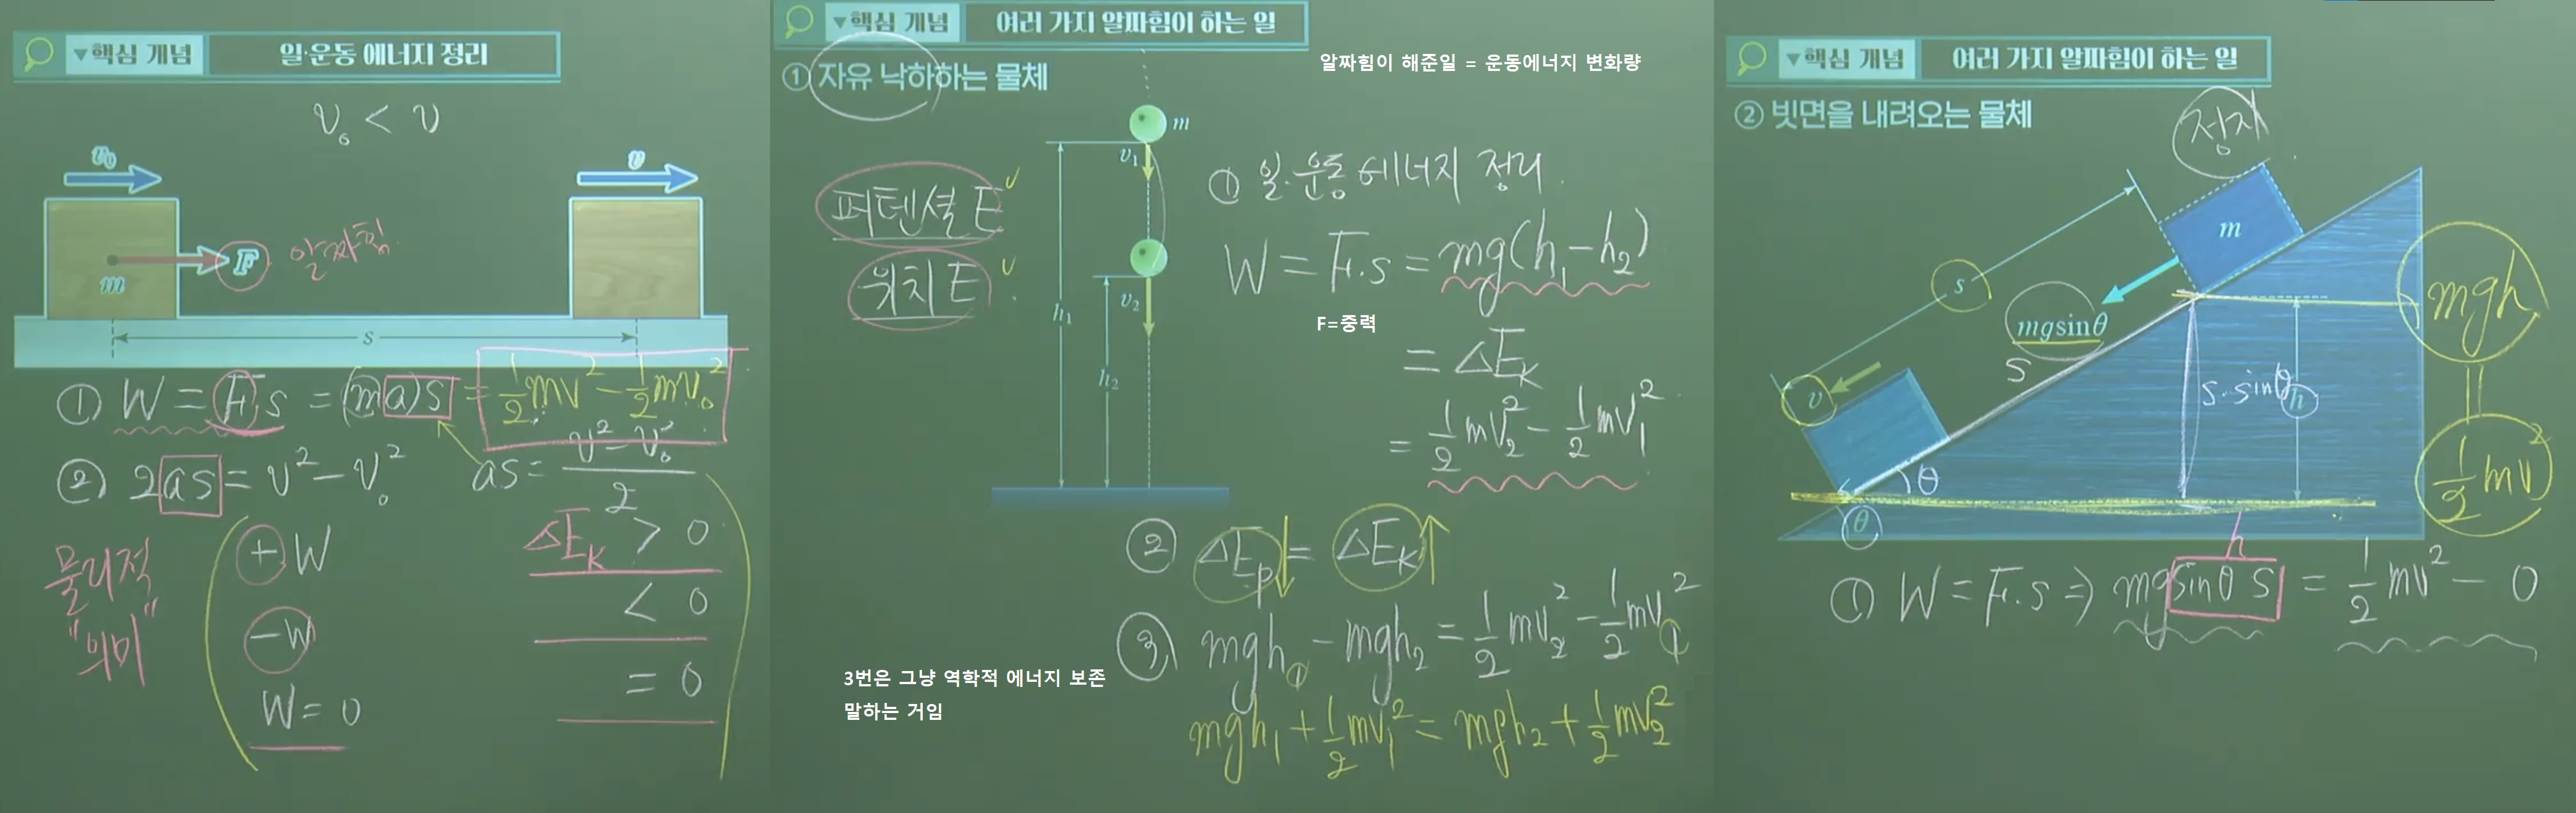 ▼핵심 개념 일·운동 에너지 정리
v₀ < v
v₀
v
F 알짜힘
m
s
① W = F·s = (ma)s = ½mv² - ½mv₀²
② 2as = v² - v₀² as = (v² - v₀²)/2
물리적 "의미"
+W ΔEₖ > 0
-W < 0
W = 0 = 0
▼핵심 개념 여러 가지 알짜힘이 하는 일
① 자유 낙하하는 물체
알짜힘이 해준일 = 운동에너지 변화량
m
v₁
퍼텐셜 E
위치 E
v₂
h₁
h₂
① 일·운동 에너지 정리
W = F·s = mg(h₁-h₂)
F=중력
= ΔEₖ
= ½mv₂² - ½mv₁²
② ΔEₚ↓ = ΔEₖ↑
③ mgh₁ - mgh₂ = ½mv₂² - ½mv₁²
mgh₁ + ½mv₁² = mgh₂ + ½mv₂²
3번은 그냥 역학적 에너지 보존
말하는 거임
▼핵심 개념 여러 가지 알짜힘이 하는 일
② 빗면을 내려오는 물체
정지
m
s
mgsinθ
s
v
s·sinθ
h
θ
θ
mgh
=
½mv²
h
① W = F·s ⇒ mgsinθ s = ½mv² - 0